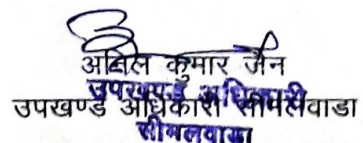 अनिल कुमार जैन
उपखण्ड अधिकारी
उपखण्ड अधिकारी सीमलवाडा
सीमलवाडा